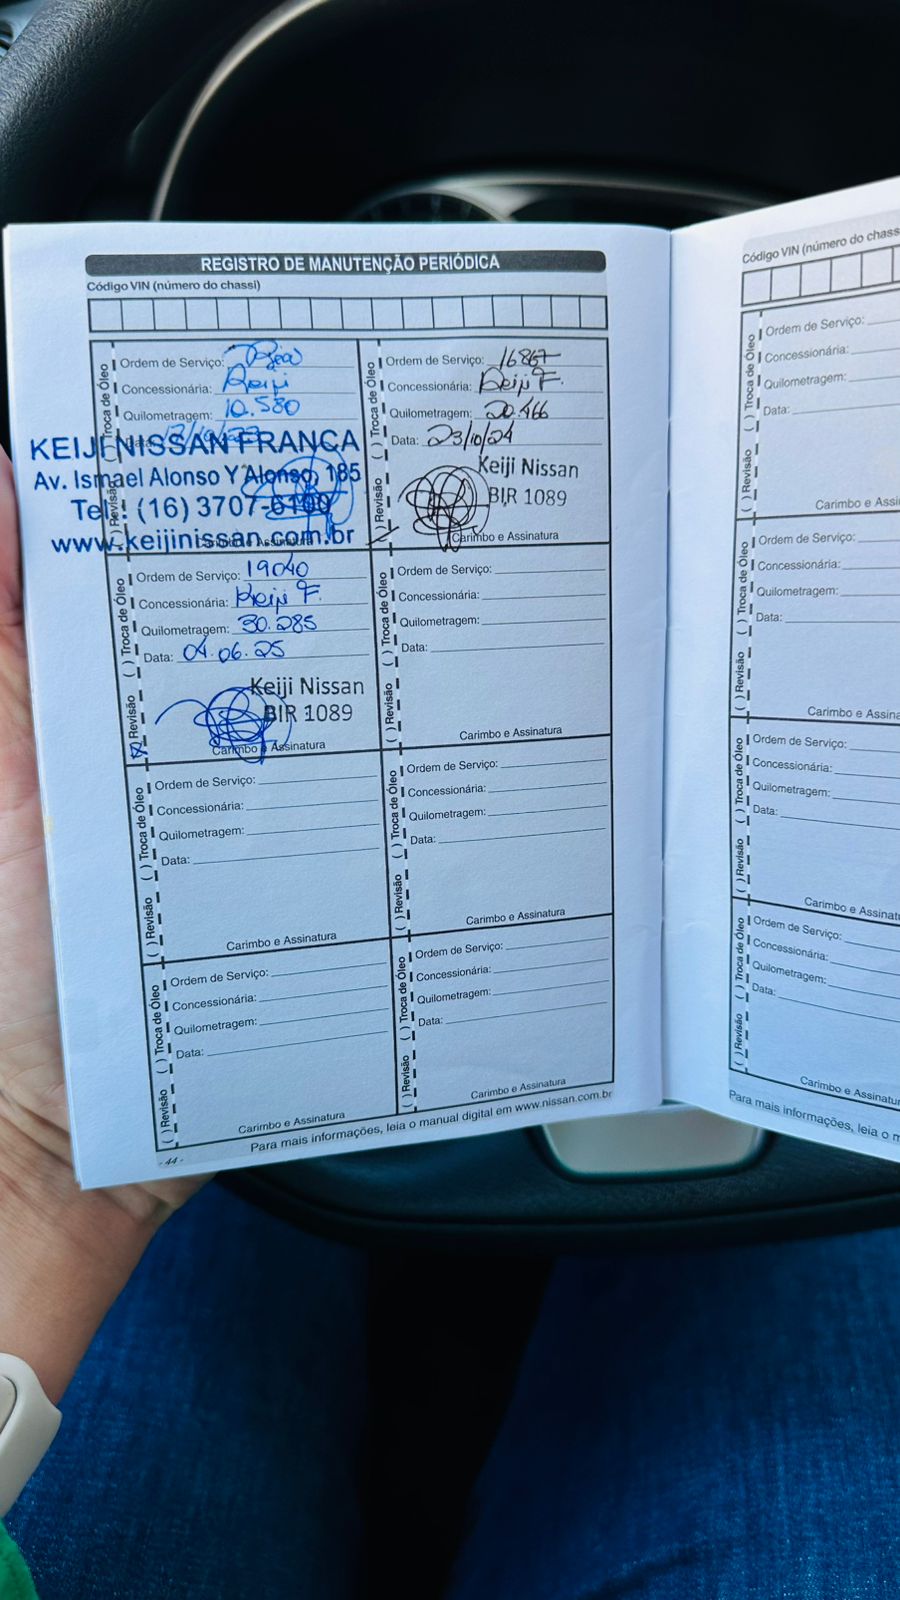 REGISTRO DE MANUTENÇÃO PERIÓDICA
Código VIN (número do chassi)
( ) Troca de Óleo
( ) Revisão
Ordem de Serviço:
Concessionária: Keiji
Quilometragem: 10.580
Data:
KEIJI NISSAN FRANCA
Av. Ismael Alonso Y Alonso, 185
Tel.: (16) 3707-6100
www.keijinissan.com.br
Carimbo e Assinatura
( ) Troca de Óleo
( ) Revisão
Ordem de Serviço: 16867
Concessionária: Keiji F.
Quilometragem: 20.466
Data: 23/10/24
Keiji Nissan
BIR 1089
Carimbo e Assinatura
( ) Troca de Óleo
(X) Revisão
Ordem de Serviço: 19040
Concessionária: Keiji F.
Quilometragem: 30.285
Data: 04.06.25
Keiji Nissan
BIR 1089
Carimbo e Assinatura
( ) Troca de Óleo
( ) Revisão
Ordem de Serviço:
Concessionária:
Quilometragem:
Data:
Carimbo e Assinatura
( ) Troca de Óleo
( ) Revisão
Ordem de Serviço:
Concessionária:
Quilometragem:
Data:
Carimbo e Assinatura
( ) Troca de Óleo
( ) Revisão
Ordem de Serviço:
Concessionária:
Quilometragem:
Data:
Carimbo e Assinatura
( ) Troca de Óleo
( ) Revisão
Ordem de Serviço:
Concessionária:
Quilometragem:
Data:
Carimbo e Assinatura
( ) Troca de Óleo
( ) Revisão
Ordem de Serviço:
Concessionária:
Quilometragem:
Data:
Carimbo e Assinatura
Para mais informações, leia o manual digital em www.nissan.com.br
- 44 -
Código VIN (número do chass
( ) Troca de Óleo
( ) Revisão
Ordem de Serviço:
Concessionária:
Quilometragem:
Data:
Carimbo e Assina
( ) Troca de Óleo
( ) Revisão
Ordem de Serviço:
Concessionária:
Quilometragem:
Data:
Carimbo e Assina
( ) Troca de Óleo
( ) Revisão
Ordem de Serviço:
Concessionária:
Quilometragem:
Data:
Carimbo e Assinatu
( ) Troca de Óleo
( ) Revisão
Ordem de Serviço:
Concessionária:
Quilometragem:
Data:
Carimbo e Assinatu
Para mais informações, leia o m